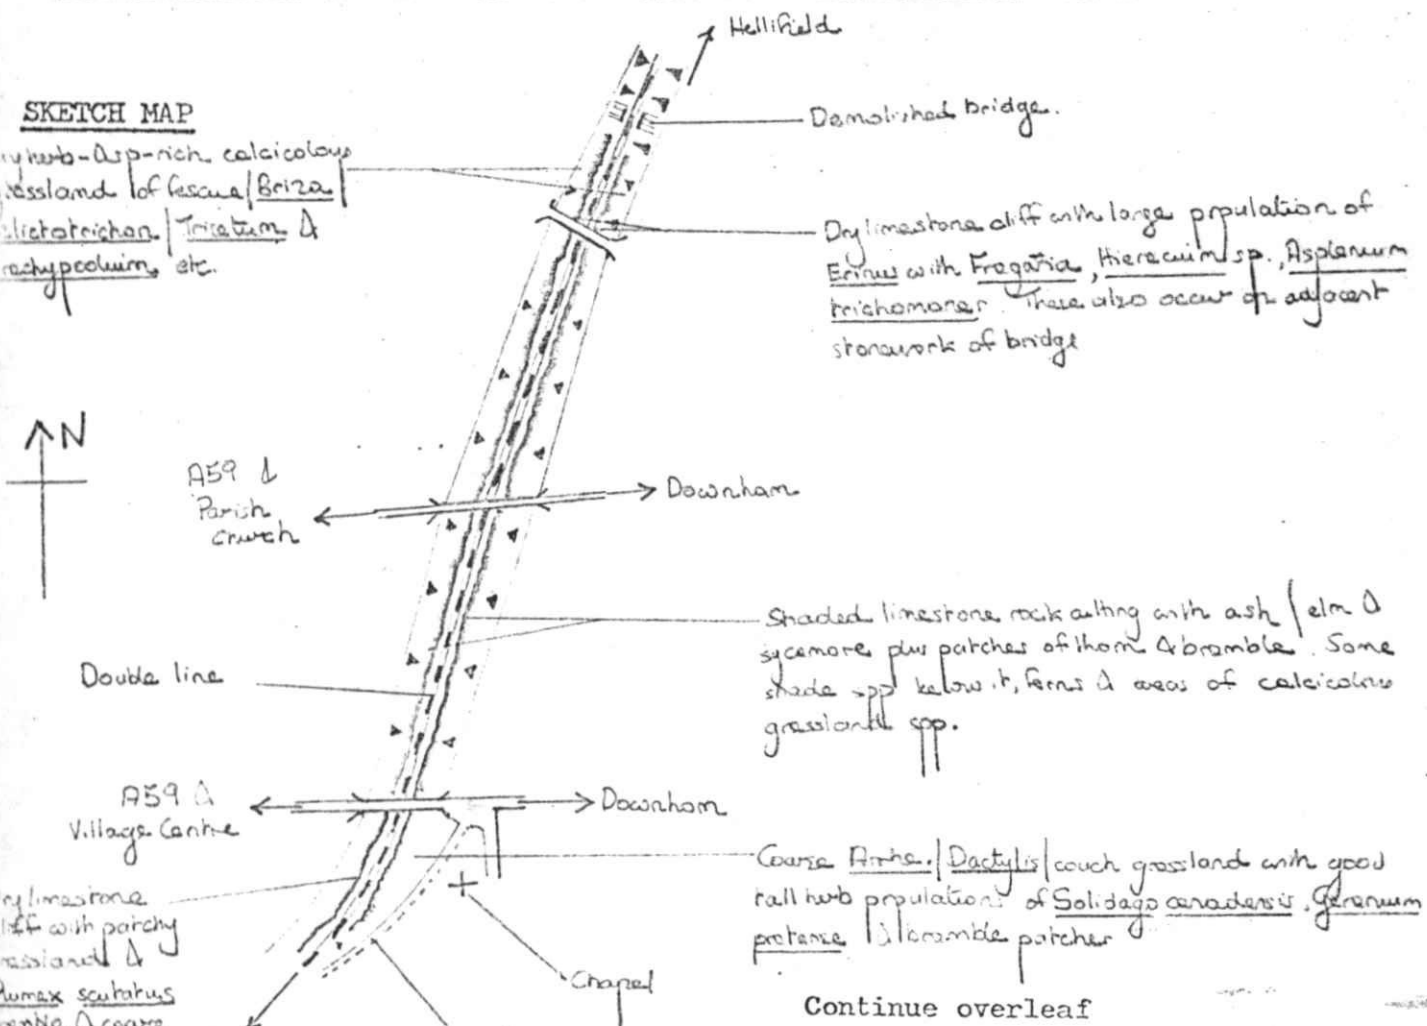 Hellifield
SKETCH MAP
herb-rich calcicolous
grassland of fescue/Briza/
Trisetum &
etc.
Demolished bridge.
Dry limestone cliff with large population of
Erinus with Fragaria, Hieracium sp., Asplenium
trichomanes. These also occur on adjacent
stonework of bridge
N
A59 &
Parish
Church
Downham
Shaded limestone rock cutting with ash/elm &
sycamore plus patches of thorn & bramble. Some
shade spp below it, ferns & areas of calcicolous
grassland spp.
Double line
A59 &
Village Centre
Downham
Coarse Arrhe./Dactylis/couch grassland with good
tall herb populations of Solidago canadensis, Geranium
pratense & bramble patches
limestone
cliff with patchy
grassland &
Rumex scutatus
& coarse
Chapel
Continue overleaf